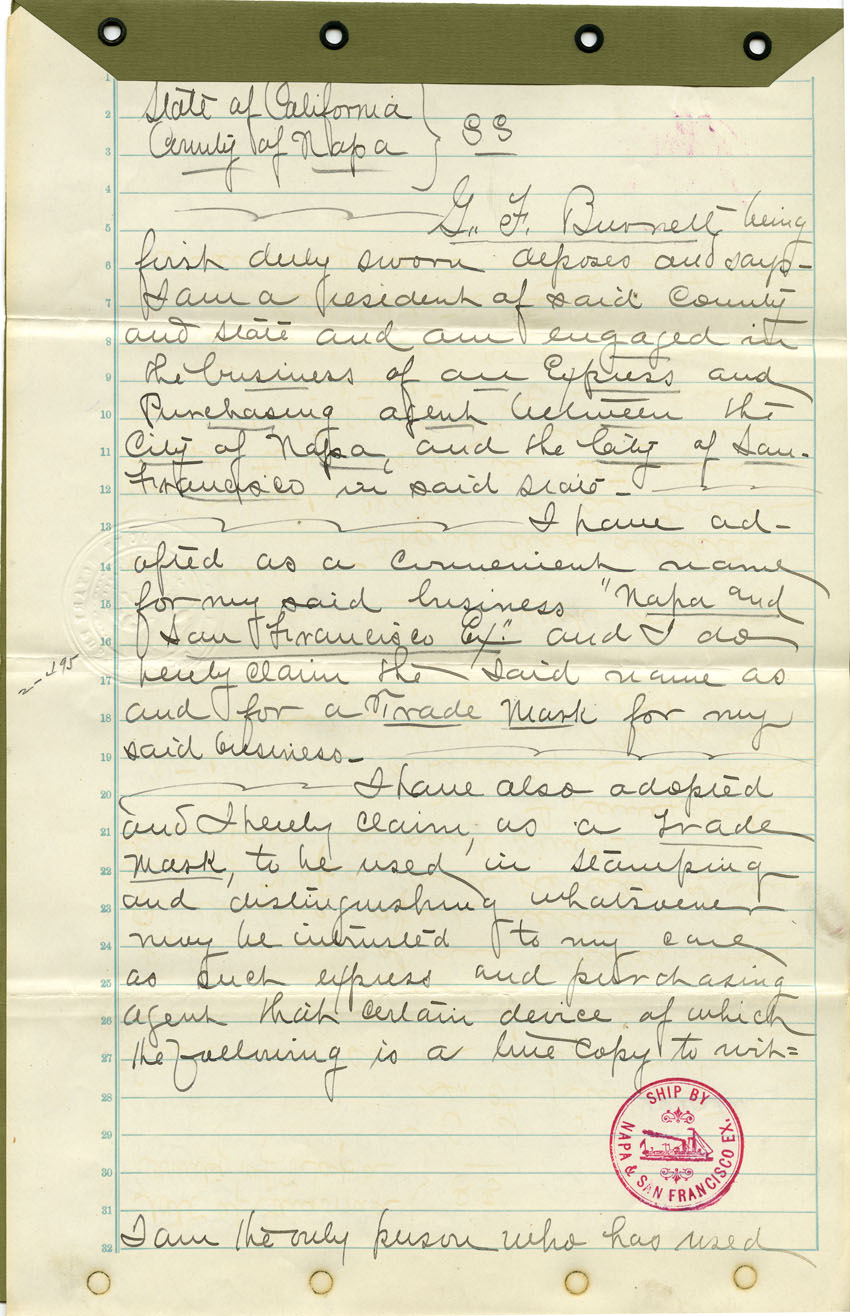 State of California
County of Napa } SS
G. F. Burnett, being
first duly sworn deposes and says-
I am a resident of said County
and State and am engaged in
the business of an Express and
Purchasing agent between the
City of Napa, and the City of San-
Francisco in said State-
I have ad-
opted as a convenient name
for my said business "Napa and
San Francisco Ex." and I do
hereby claim the said name as
and for a Trade Mark for my
said business-
I have also adopted
and I hereby claim, as a Trade
Mark, to be used in stamping
and distinguishing whatsoever
may be intrusted to my care
as such express and purchasing
agent that certain device of which
the following is a true copy to wit=
SHIP BY
NAPA & SAN FRANCISCO EX.
I am the only person who has used
1
2
3
4
5
6
7
8
9
10
11
12
13
14
15
16
17
18
19
20
21
22
23
24
25
26
27
28
29
30
31
32